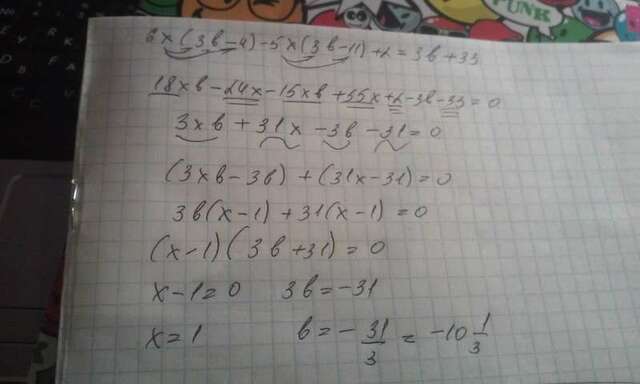 PUNK
6x(3b-4)-5x(3b-11)+2=3b+33
18xb-24x-15xb+55x+2-3b-33=0
3xb+31x-3b-31=0
(3xb-3b)+(31x-31)=0
3b(x-1)+31(x-1)=0
(x-1)(3b+31)=0
x-1=0 3b=-31
x=1 b=-31/3=-10 1/3